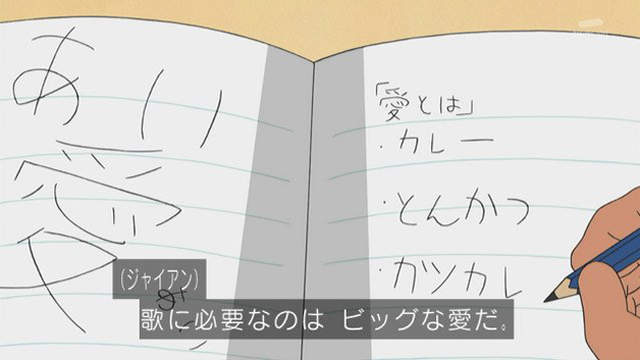 あい
愛
「愛とは」
・カレー
・とんかつ
・カツカレ
(ジャイアン)
歌に必要なのは ビッグな愛だ。